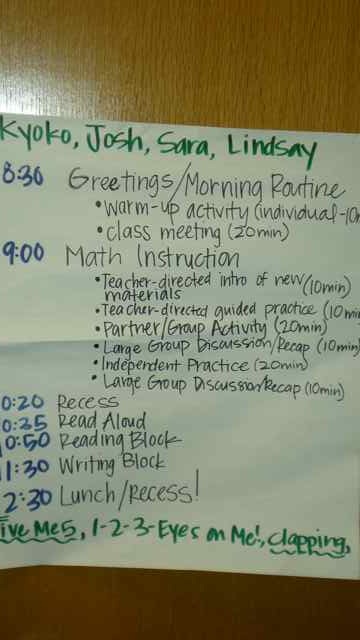 Kyoko, Josh, Sara, Lindsay
8:30 Greetings/Morning Routine
• warm-up activity (individual-10m
• class meeting (20min)
9:00 Math Instruction
• Teacher-directed intro of new (10min)
materials
• Teacher-directed guided practice (10min
• Partner/Group Activity (20min)
• Large Group Discussion/Recap (10min)
• Independent Practice (20min)
• Large Group Discussion/Recap (10min)
0:20 Recess
0:35 Read Aloud
0:50 Reading Block
1:30 Writing Block
2:30 Lunch/Recess!
ive Me 5, 1-2-3-Eyes on Me!, clapping,